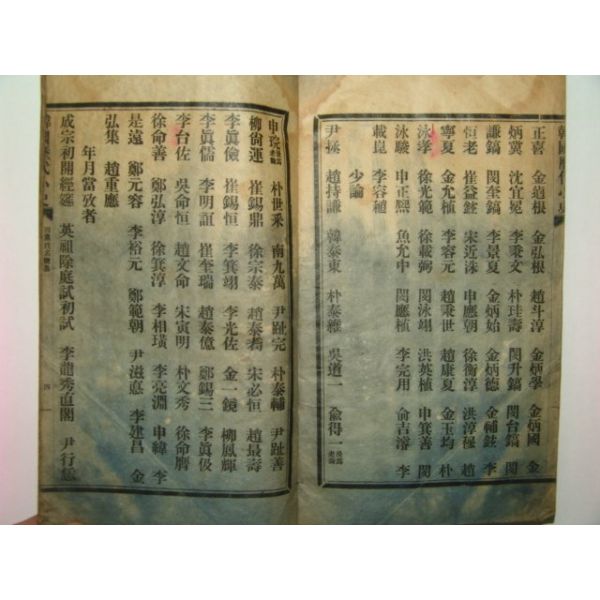 韓國歷代小史
正喜 金逌根 金弘根 趙斗淳 金炳學 金炳國 金
炳冀 沈宜冕 李秉文 朴珪壽 閔升鎬 閔台鎬 閔
謙鎬 閔奎鎬 李景夏 金炳始 金炳德 金輔鉉 李
恒老 崔益鉉 宋近洙 申應朝 徐衡淳 洪淳穆 趙
寧夏 金允植 李容元 趙秉世 趙康夏 金玉均 朴
泳孝 徐光範 徐載弼 閔泳翊 洪英植 申箕善 閔
泳駿 申正熙 魚允中 閔應植 李完用 俞吉濬 李
載崐 李容稙
少論
尹拯 趙持謙 韓泰東 朴泰維 吳道一 俞得一
申琓 朴世采 南九萬 尹趾完 朴泰輔 尹趾善
柳尙運 崔錫鼎 徐宗泰 趙泰耉 宋必恒 趙最壽
李眞儉 崔錫恒 李箕翊 李光佐 金一鏡 柳鳳輝
李眞儒 李明誼 崔奎瑞 趙泰億 鄭錫三 李眞伋
李台佐 吳命恒 趙文命 宋寅明 朴文秀 徐命膺
徐命善 鄭弘淳 徐箕淳 李相璜 李亮淵 申緯 李
是遠 鄭元容 李裕元 鄭範朝 尹滋悳 李建昌 金
弘集 趙重應
年月當攷者
成宗初開經筵 英祖除庭試初試 李龍秀直閣 尹行恁
韓國歷代小史
四